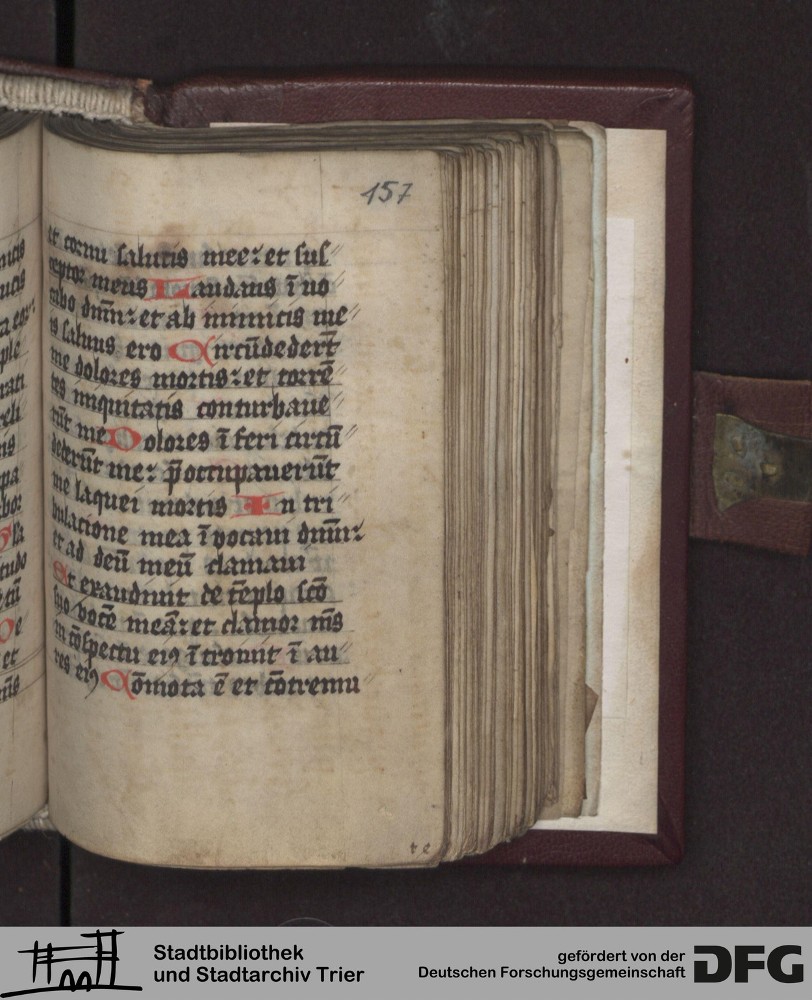 157
et cornu salutis mee: et sus
ceptor meus Laudans ī no
cabo dn̄m: et ab inimicis me
is saluus ero Circūdederūt
me dolores mortis: et torrē
tes iniquitatis conturbaue
rūt me Dolores īferi circū
dederūt me: p̄occupauerūt
me laquei mortis In tri
bulacione mea īuocaui dn̄m:
et ad deū meū clamaui
Et exaudiuit de tēplo scō
suo vocē meā: et clamor m̄s
in cōspectu eiꝯ ītroiuit ī au
res eiꝯ Cōmota ē et cōtremu
Stadtbibliothek
und Stadtarchiv Trier
gefördert von der
Deutschen Forschungsgemeinschaft
DFG